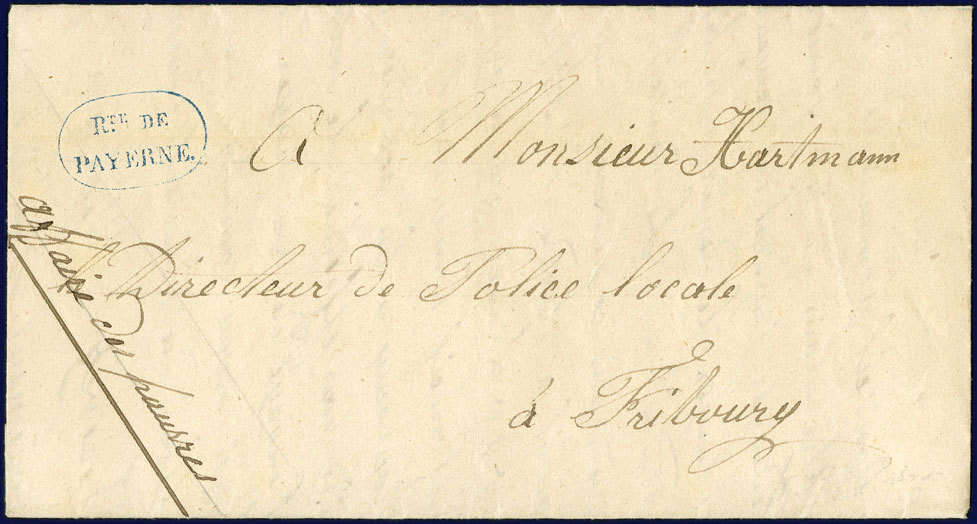 RTE DE
PAYERNE.
A Monsieur Hartmann
Directeur de Police locale
à Fribourg
affaire des pauvres